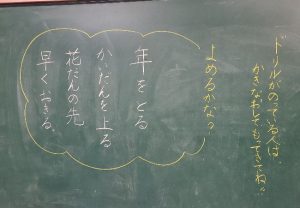 ドリルがのこっている人は、
かきなおしをもってきてね。
よめるかな？
年をとる
かいだんを上る
花だんの先
早くおきる